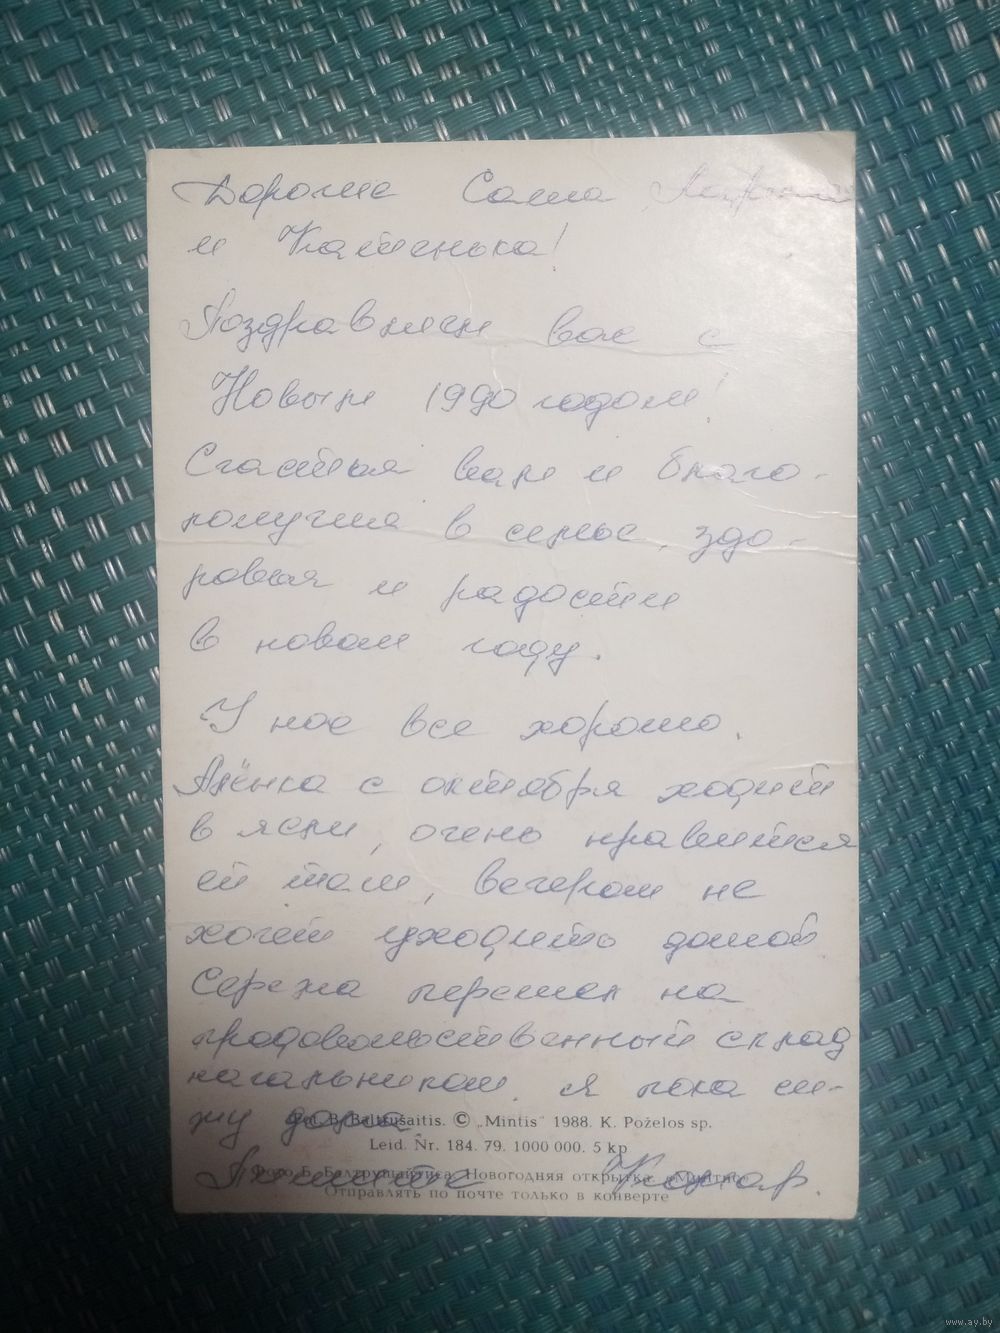 Дорогие Саша, Марина
и Катенька!
Поздравляем вас с
Новым 1990 годом!
Счастья вам и благо-
получия в семье, здо-
ровья и радости
в новом году.
У нас все хорошо.
Алёнка с октября ходит
в ясли, очень нравится
ей там, вечером не
хочет уходить домой
Сережа перешел на
продовольственный склад
начальником. Я пока си-
жу дома.
Fot. B. Baltrušaitis. © „Mintis“ 1988. K. Poželos sp.
Leid. Nr. 184. 79. 1000 000. 5 kp
Пишите
Фото Б. Балтрушайтиса. Новогодняя открытка. «Минтис»
Отправлять по почте только в конверте
www.ay.by